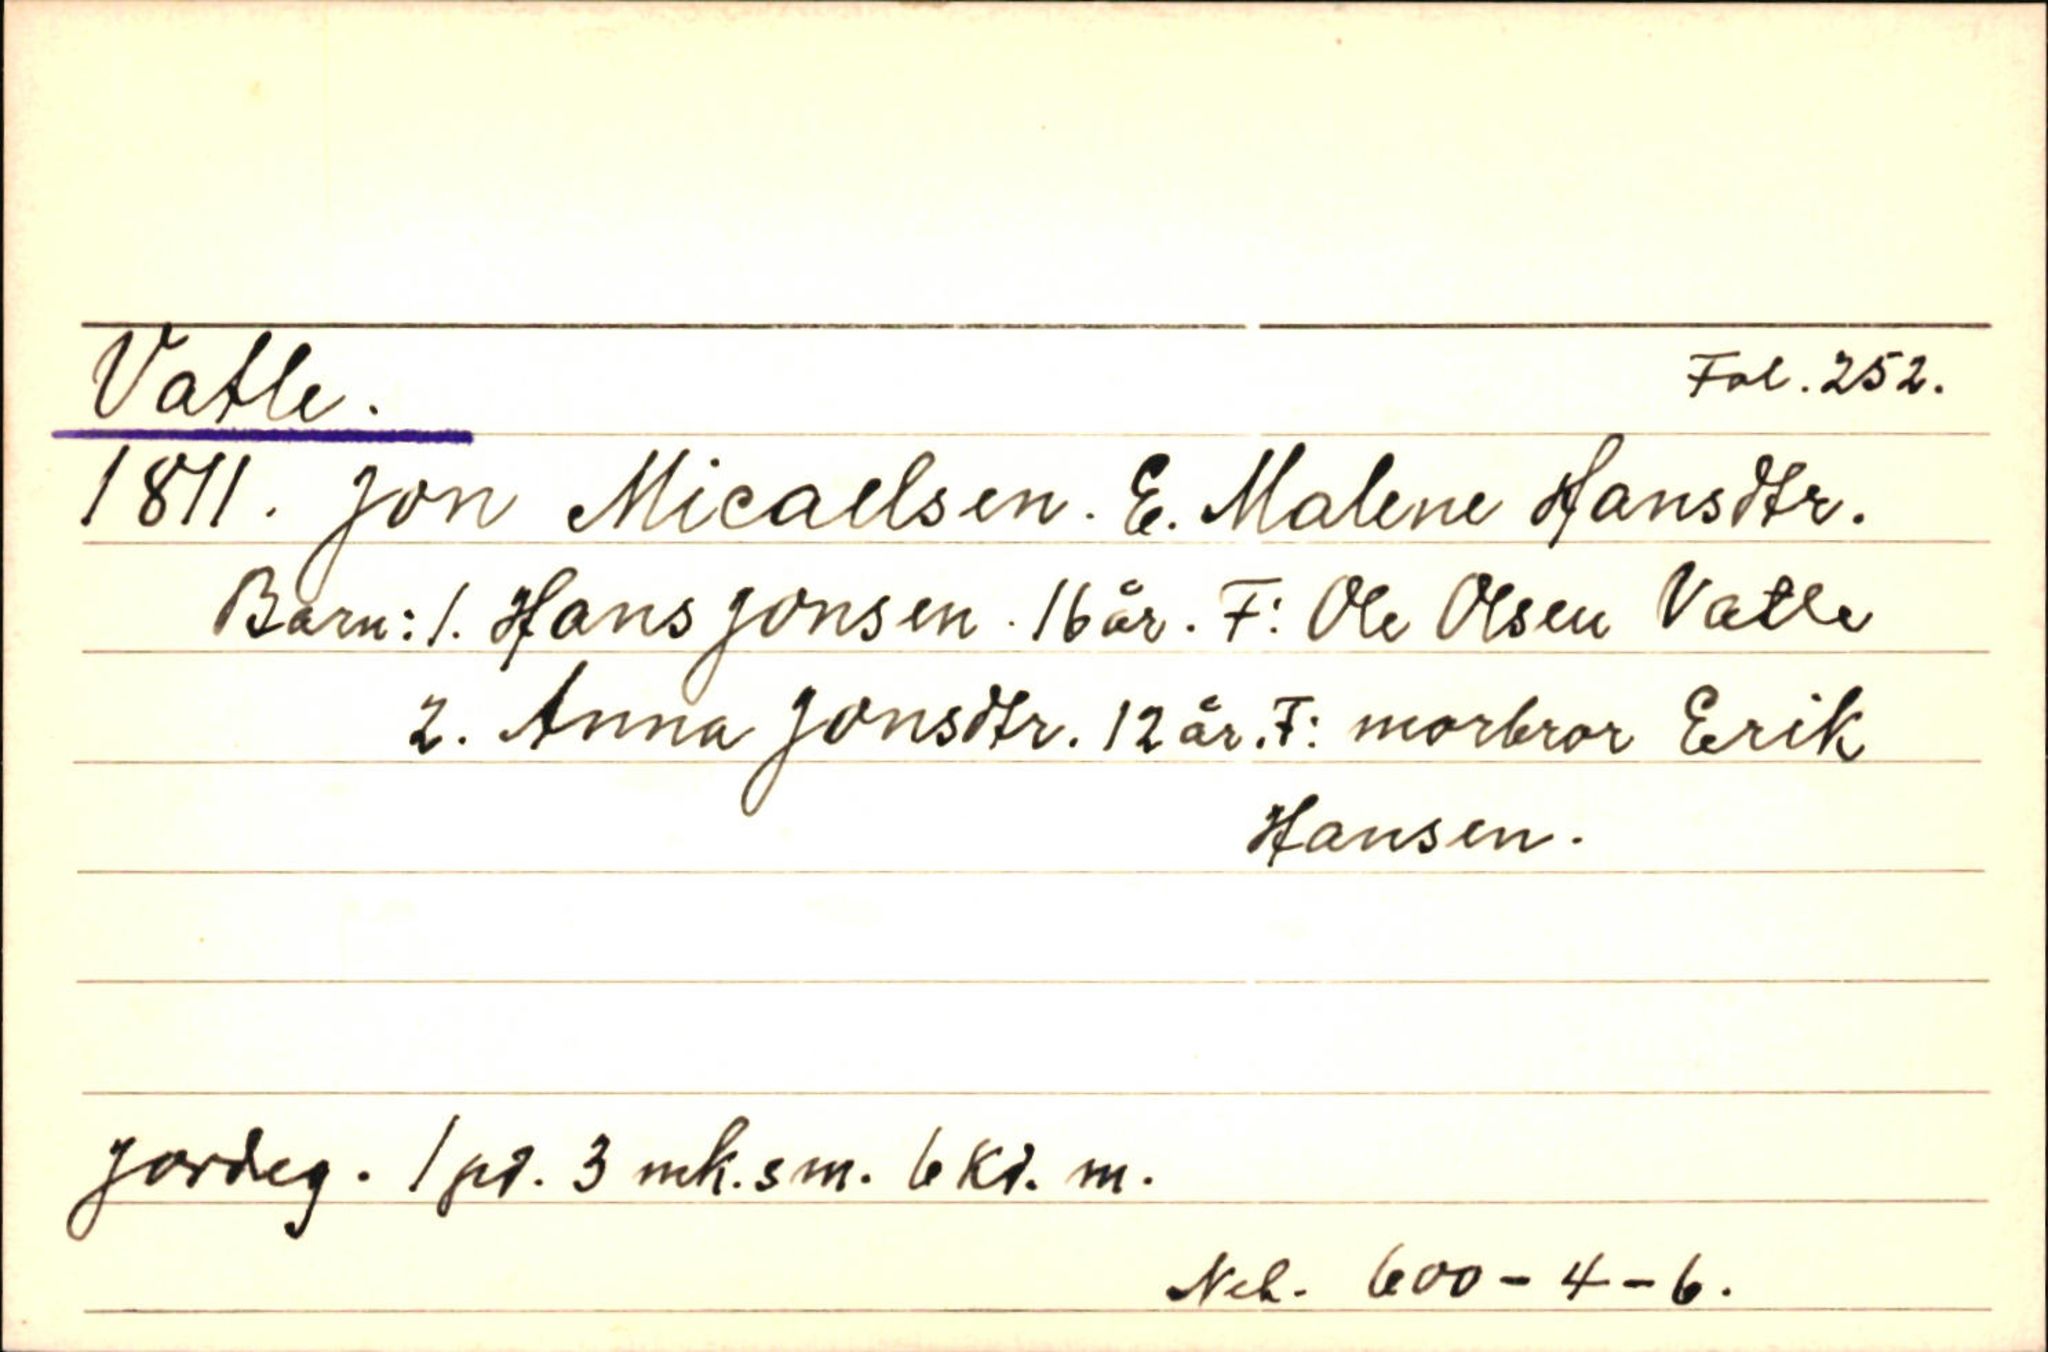 Vatle.
Fol. 252.
1811. Jon Micaelsen. E. Malene Hansdtr.
Barn: 1. Hans Jonsen. 16 år. F: Ole Olsen Vatle
2. Anna Jonsdtr. 12 år. F: morbror Erik
Hansen.
Jordeg. 1 pd. 3 mk. sm. 6 kd. m.
Neh. 600-4-6.